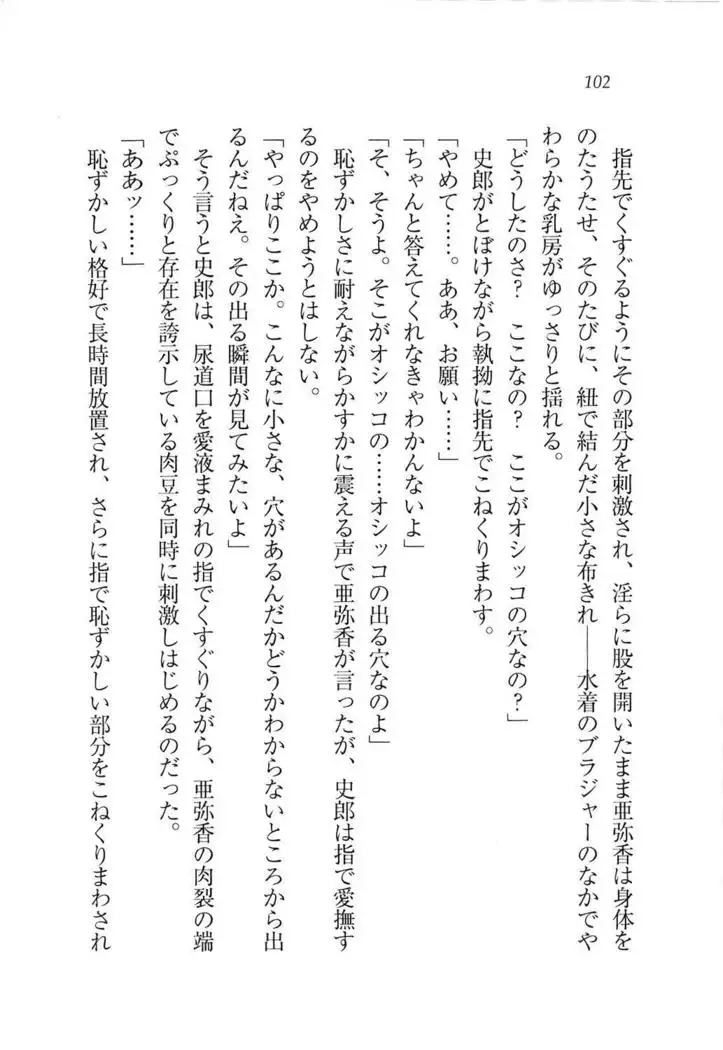 102
指先でくすぐるようにその部分を刺激され、淫らに股を開いたまま亜弥香は身体を
のたうたせ、そのたびに、紐で結んだ小さな布きれ――水着のブラジャーのなかでや
わらかな乳房がゆっさりと揺れる。
「どうしたのさ？　ここなの？　ここがオシッコの穴なの？」
史郎がとぼけながら執拗に指先でこねくりまわす。
「やめて……。ああ、お願い……」
「ちゃんと答えてくれなきゃわかんないよ」
「そ、そうよ。そこがオシッコの……オシッコの出る穴なのよ」
恥ずかしさに耐えながらかすかに震える声で亜弥香が言ったが、史郎は指で愛撫す
るのをやめようとはしない。
「やっぱりここか。こんなに小さな、穴があるんだかどうかわからないところから出
るんだねえ。その出る瞬間が見てみたいよ」
そう言うと史郎は、尿道口を愛液まみれの指でくすぐりながら、亜弥香の肉裂の端
でぷっくりと存在を誇示している肉豆を同時に刺激しはじめるのだった。
「ああッ……」
恥ずかしい格好で長時間放置され、さらに指で恥ずかしい部分をこねくりまわされ